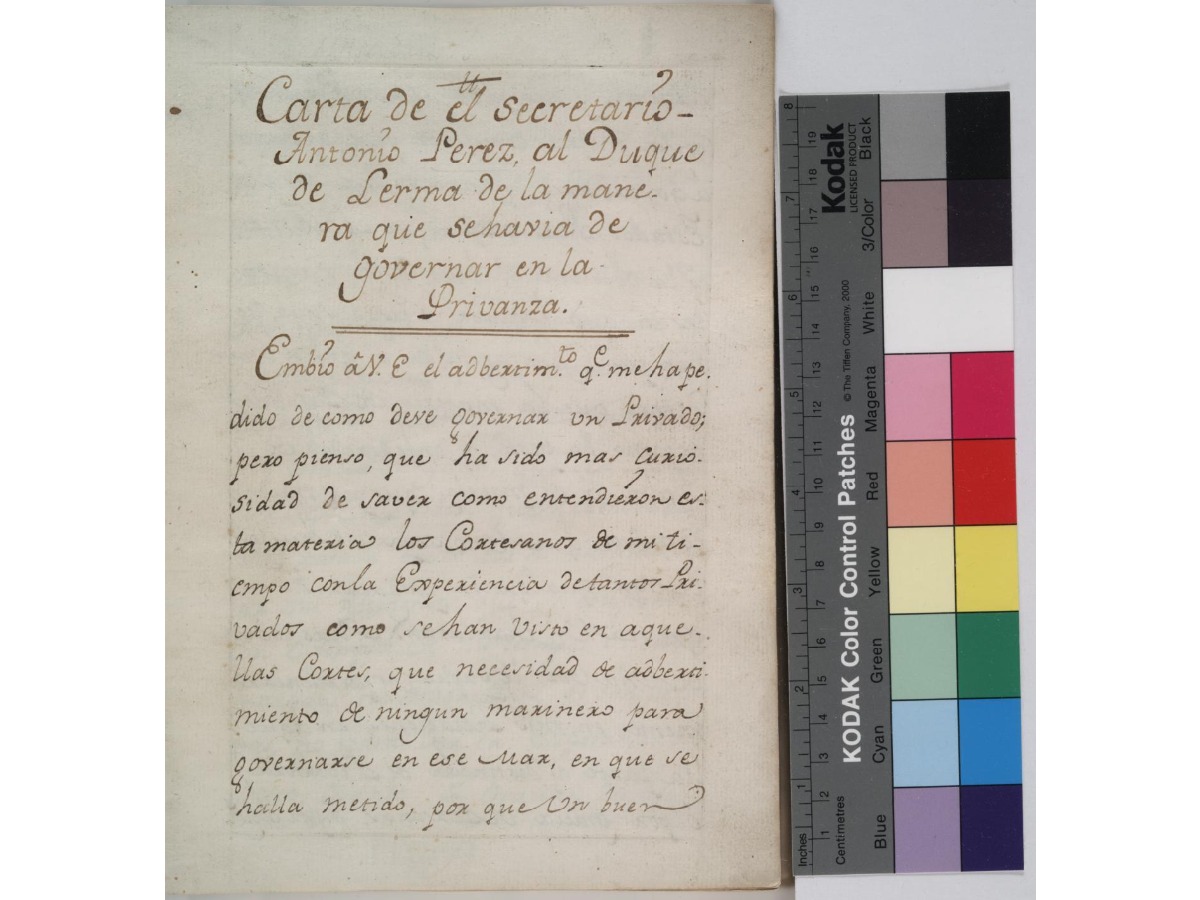 Carta de el secretario
Antonio Perez, al Duque
de Lerma de la mane-
ra que sehavia de
governar en la
Privanza.
Embio â V. E el adbertim.to q.e mehape-
dido de como deve governar un Privado;
pero pienso, que ha sido mas curio-
sidad de saver como entendieron es-
ta materia los Cortesanos de mi ti-
empo conla Experiencia detantos Pri-
vados como sehan visto en aque-
llas Cortes, que necesidad de adberti-
miento de ningun marinero para
governarse en ese Mar, en que se
halla metido, por que Un buen
Kodak
LICENSED PRODUCT
KODAK Color Control Patches
© The Tiffen Company, 2000
Black
3/Color
White
Magenta
Red
Yellow
Green
Cyan
Blue
Inches 1 2 3 4 5 6 7 8
Centimetres 1 2 3 4 5 6 7 8 9 10 11 12 13 14 15 16 17 18 19